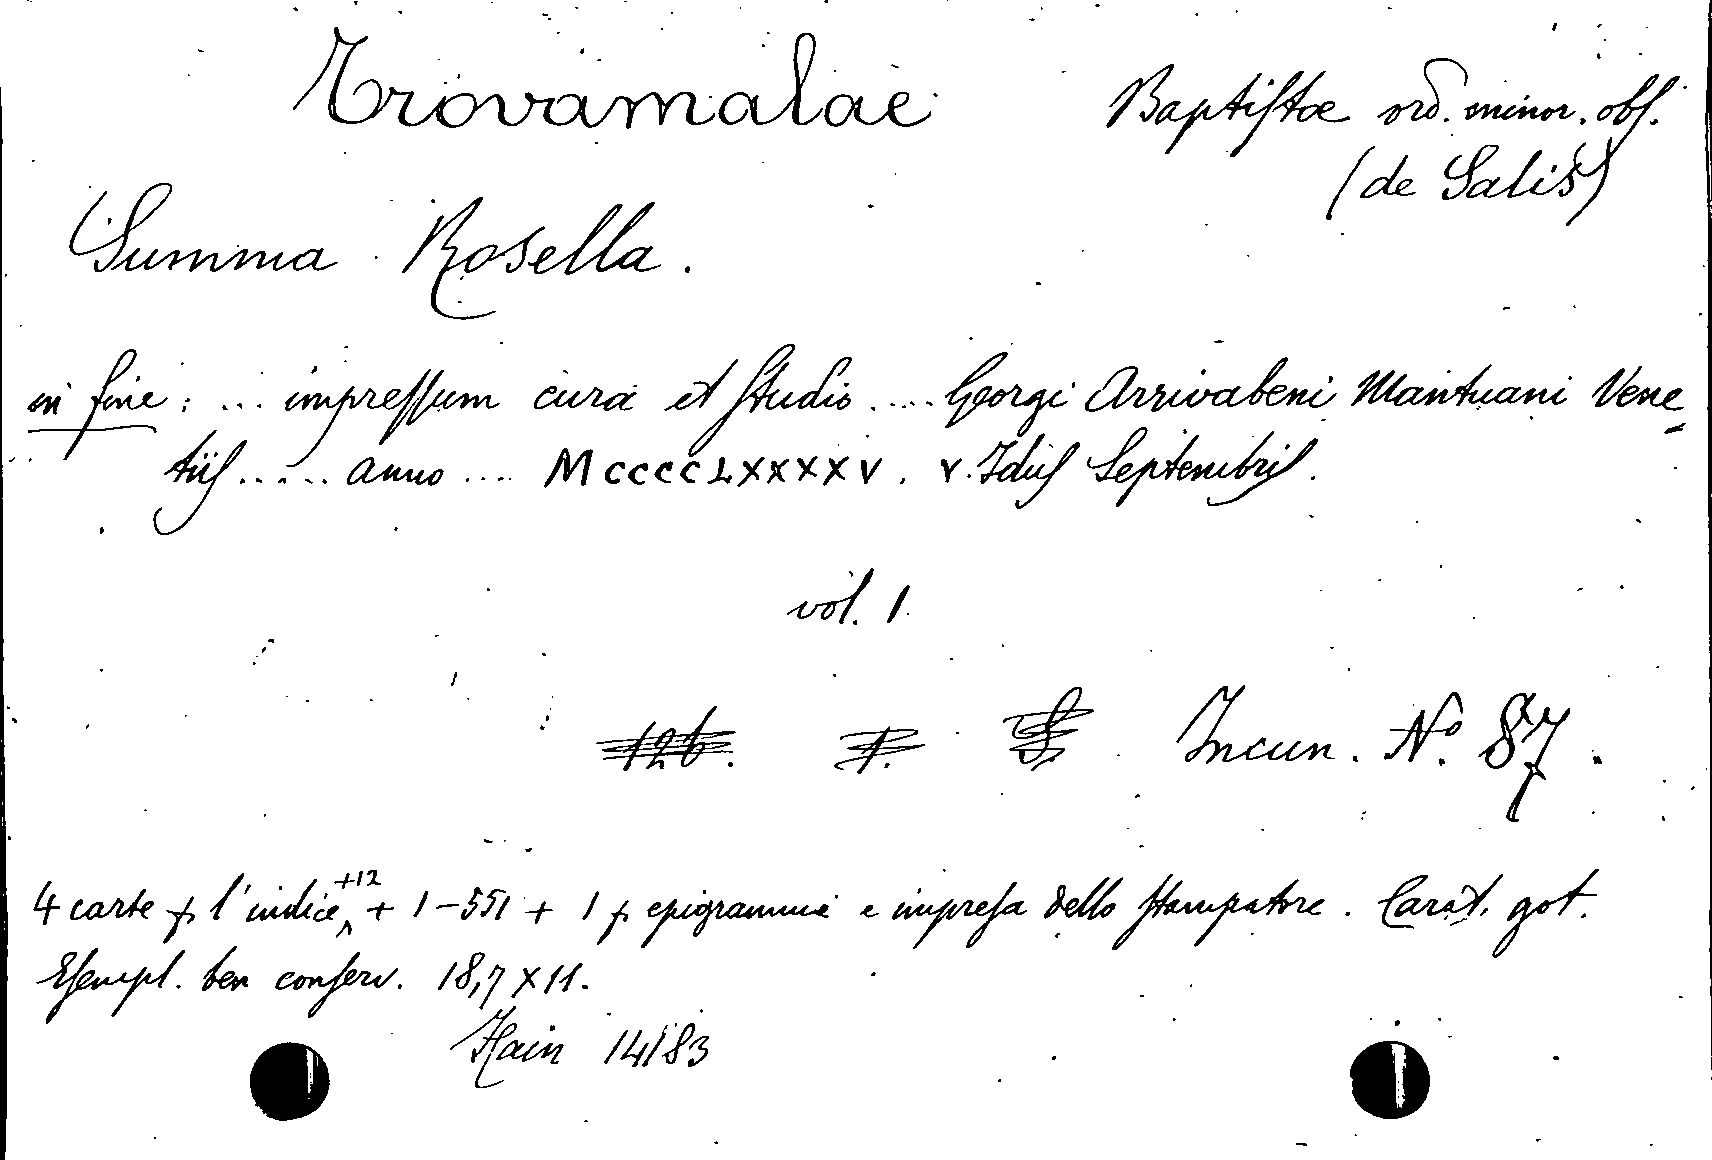 Trovamalae Baptistae ord. minor. obs.
(de Salis)
Summa Rosella.
in fine: ... impressum cura et studio .... Georgi Arrivabeni Mantuani Vene=
tiis ..... anno .... MCCCCLXXXXV. V. Idus Septembris.
vol. 1
126. 1. Incun. Nº 87.
4 carte p l'indice +12 + 1-551 + 1 p. epigramme e impresa dello stampatore. Carat. got.
Esempl. ben conserv. 18,7 x 11.
Hain 14183